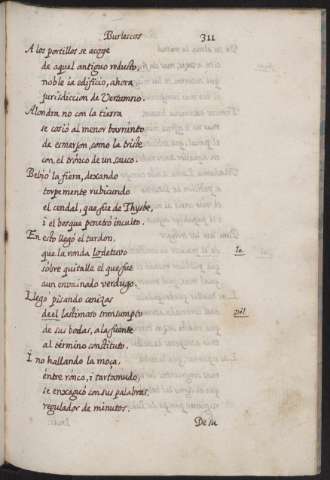 Burlescos 311
A los portillos se acoge
de aquel antiguo reducto,
noble ia edificio, ahora
jurisdiccion de Vertumno.
Alondra no con la tierra
se cosió al menor barrunto
de esmerjon, como la triste
con el tronco de un sauco.
Bebió la fiera, dexando
torpemente rubicundo
el cendal, que fue de Thysbe,
i el bosque penetró inculto.
En esto llegó el tardon,
que la ronda lo detuvo la
sobre quitalle el que fue
aun envainado verdugo.
Llego pisando cenizas
de el lastimoso trasumpto del
de sus bodas, a la fuente
al término constituto.
I no hallando la moça,
entre ronco, i tartamudo,
se enxaguó con sus palabras,
regulador de minutos.
De su